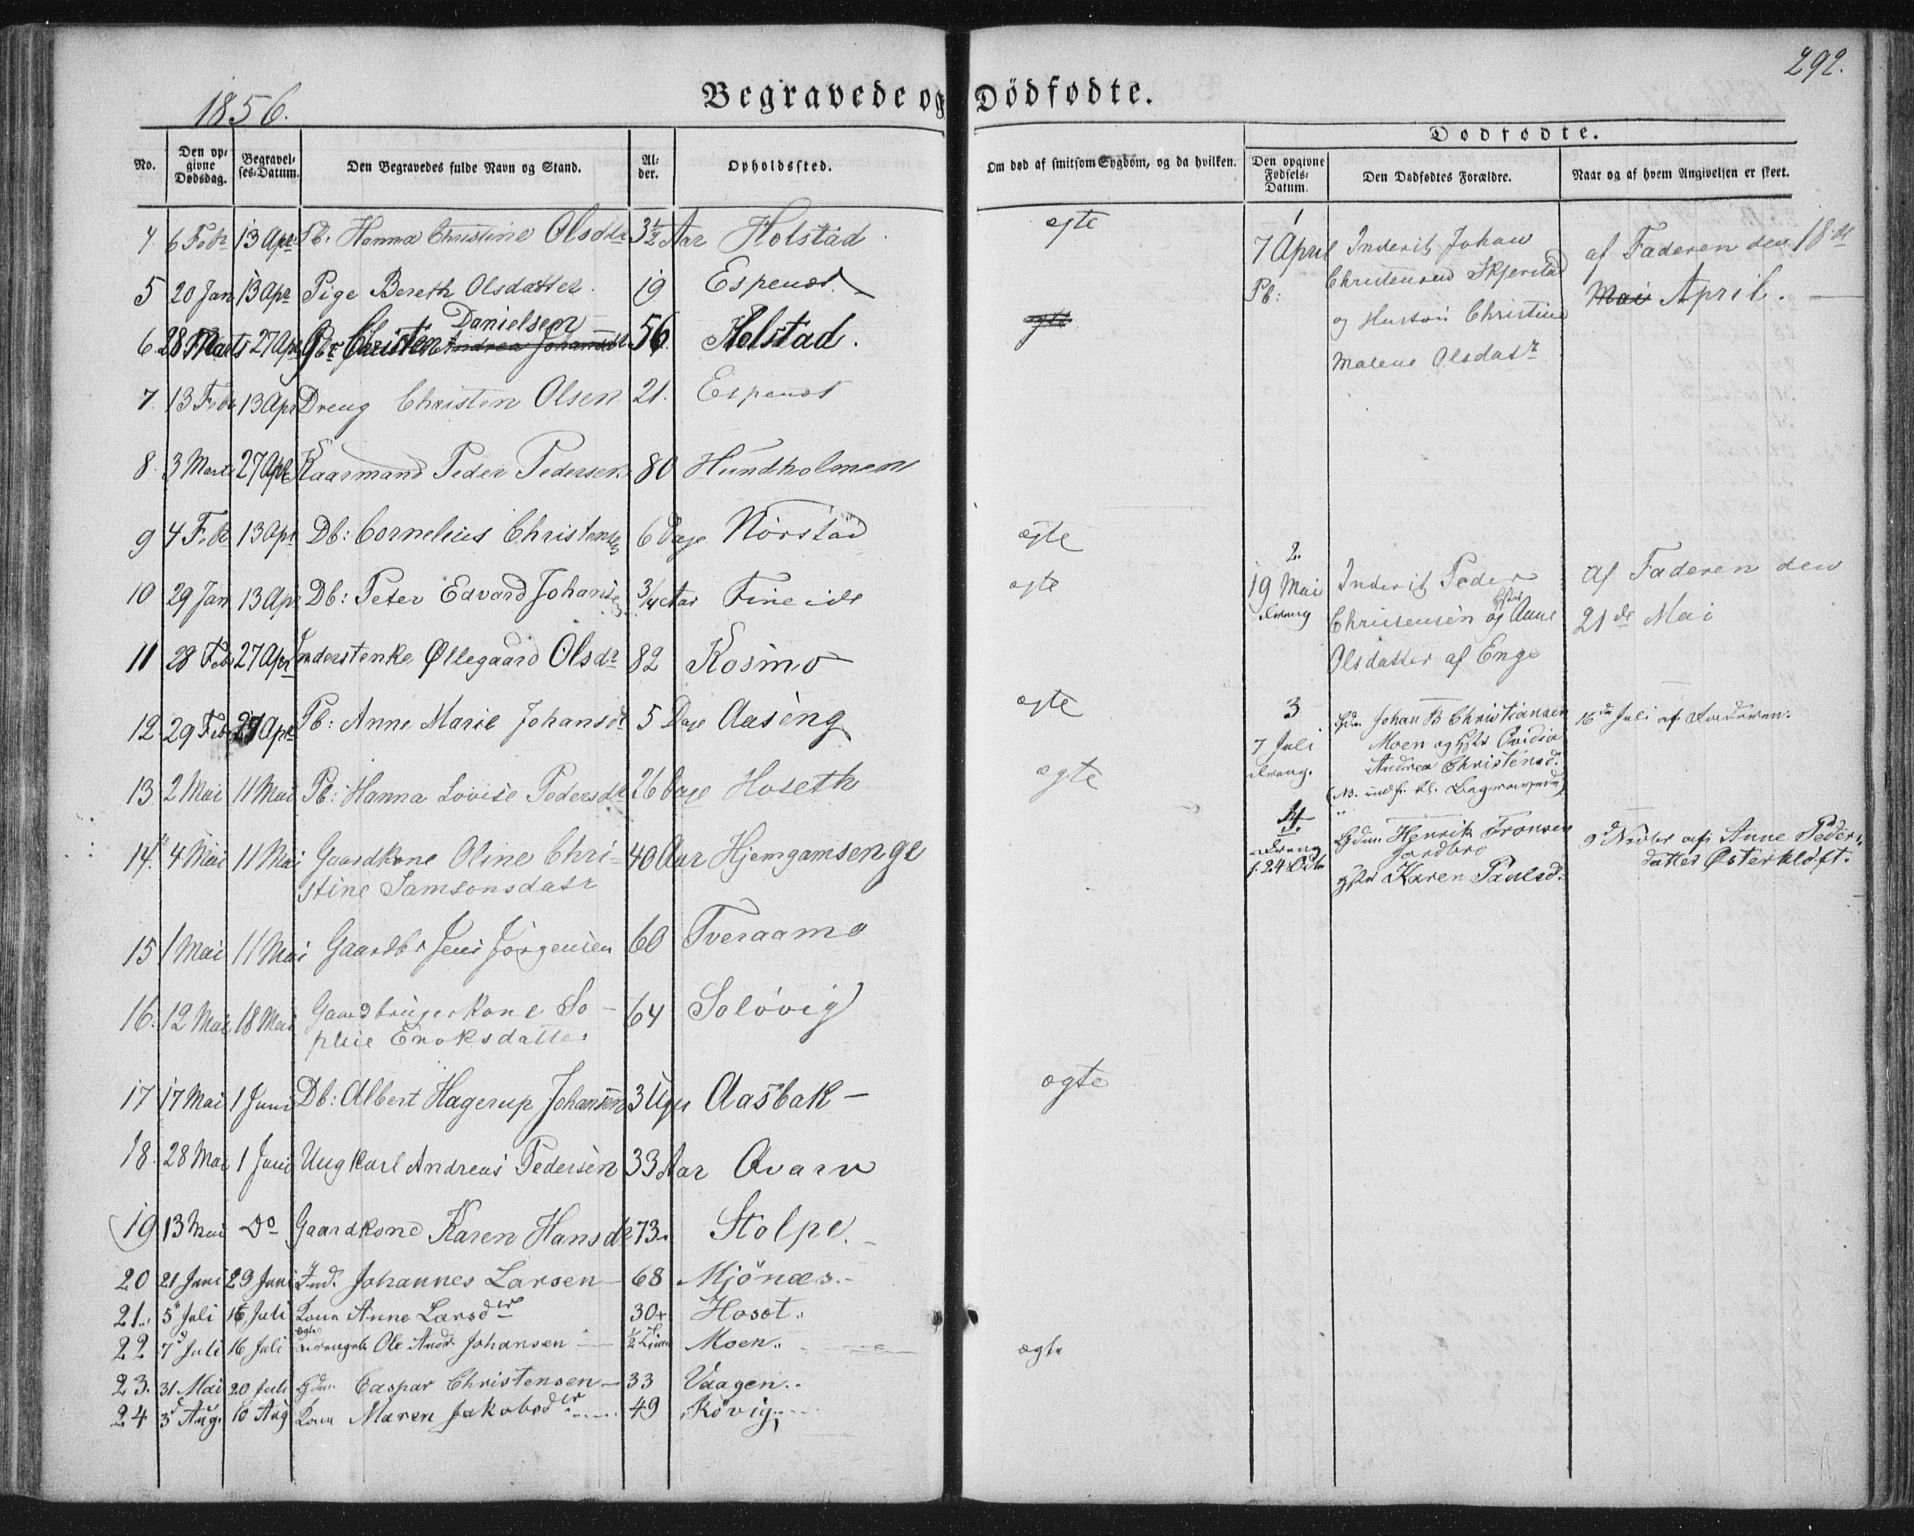 292.
1856.
Begravede og Dödfödte.
Dødfødte.
No.
Den opgivne Dødsdag.
Begravelses-Datum.
Den Begravedes fulde Navn og Stand.
Alder.
Opholdssted.
Om død af smitsom Sygdom, og da hvilken.
Den opgivne Fødsels-Datum.
Den Dødfødtes Forældre.
Naar og af hvem Angivelsen er skeet.
4 6 Febr 13 Apr Pb: Hanna Christine Olsdtr 3½ Aar Holstad ægte
5 20 Jan 13 Apr Pige Bereth Olsdatter 19 Espenæs
6 28 Marts 27 Apr Gbr Christen Danielsen Andrea Johansdt 56 Holstad. ægte
7. 13 Febr 13 Apr Dreng Christen Olsen 21. Espenæs
8. 3 Marts 27 Apr Kaarmand Peder Pedersen 80 Hundholmen
9 4 Febr 13 Apr Db: Cornelius Christensen 6 Dage Nörstad ægte
10 29 Jan 13 Apr Db: Peter Edvard Johansen 3/4 Aar Fineide ægte
11 28 Feb 27 Apr Inderstenke Øllegaard Olsdr 82 Kosmo
12 29 Feb 27 Apr Pb: Anne Marie Johansdt 5 Dage Aaseng ægte
13 2 Mai 11 Mai Pb: Hanna Lovise Pedersdt 26 Dage Hoseth ægte
14. 4 Mai 11 Mai Gaardkone Oline Chri- 40 Aar Hjemgamsenge
stine Samsonsdatr
15 1 Mai 11 Mai Gaardbr Jens Jörgensen 60 Tveraamo
16. 12 Mai 18 Mai Gaardbrugerkone So- 64 Solövig
phie Enoksdatter
17 17 Mai 1 Juni Db: Albert Hagerup Johansen 3 Uger Aasbak – ægte
18. 28 Mai 1 Juni Ungkarl Andreas Pedersen 33 Aar Qvarv
19 13 Mai Do Gaardkone Karen Hansdt 73. Stolpe.
20 21 Juni 29 Juni Ind. Johannes Larsen 68 Mjönæs.
21. 5 Juli 16 Juli Kone Anne Larsder 30 Hoset.
22 7d Juli 16 Juli ægte Drengeb Ole Andr Johansen ½ Time Moen. ægte
23. 31 Mai 20 Juli Gdm. Caspar Christensen 33 Vaagen.
24 3d Aug. 10 Aug Kone Maren Jakobsder 49 Rövig
1
7 April
Pb:
Inderst Johan
Christensen Skjerstad
og Hustru Christine
Malene Olsdatr
af Faderen den 18de
Mai April.
2.
19 Mai
Dreng
Inderst Peder
Christensen og Hstr Anne
Olsdatter af Enge
af Faderen den
21de Mai
3
7 Juli
Dreng.
Gdm. Johan B Christiansen
Moen og Hstr Ovidia
Andrea Christensd.
16de Juli af Faderen.
4.
Dreng
f. 24 Octb
Gdm. Henrik Fronsen
Jordbro
Hstr Karen Paulsd.
9d Novbr af Anne Peders-
datter Østerkløft.